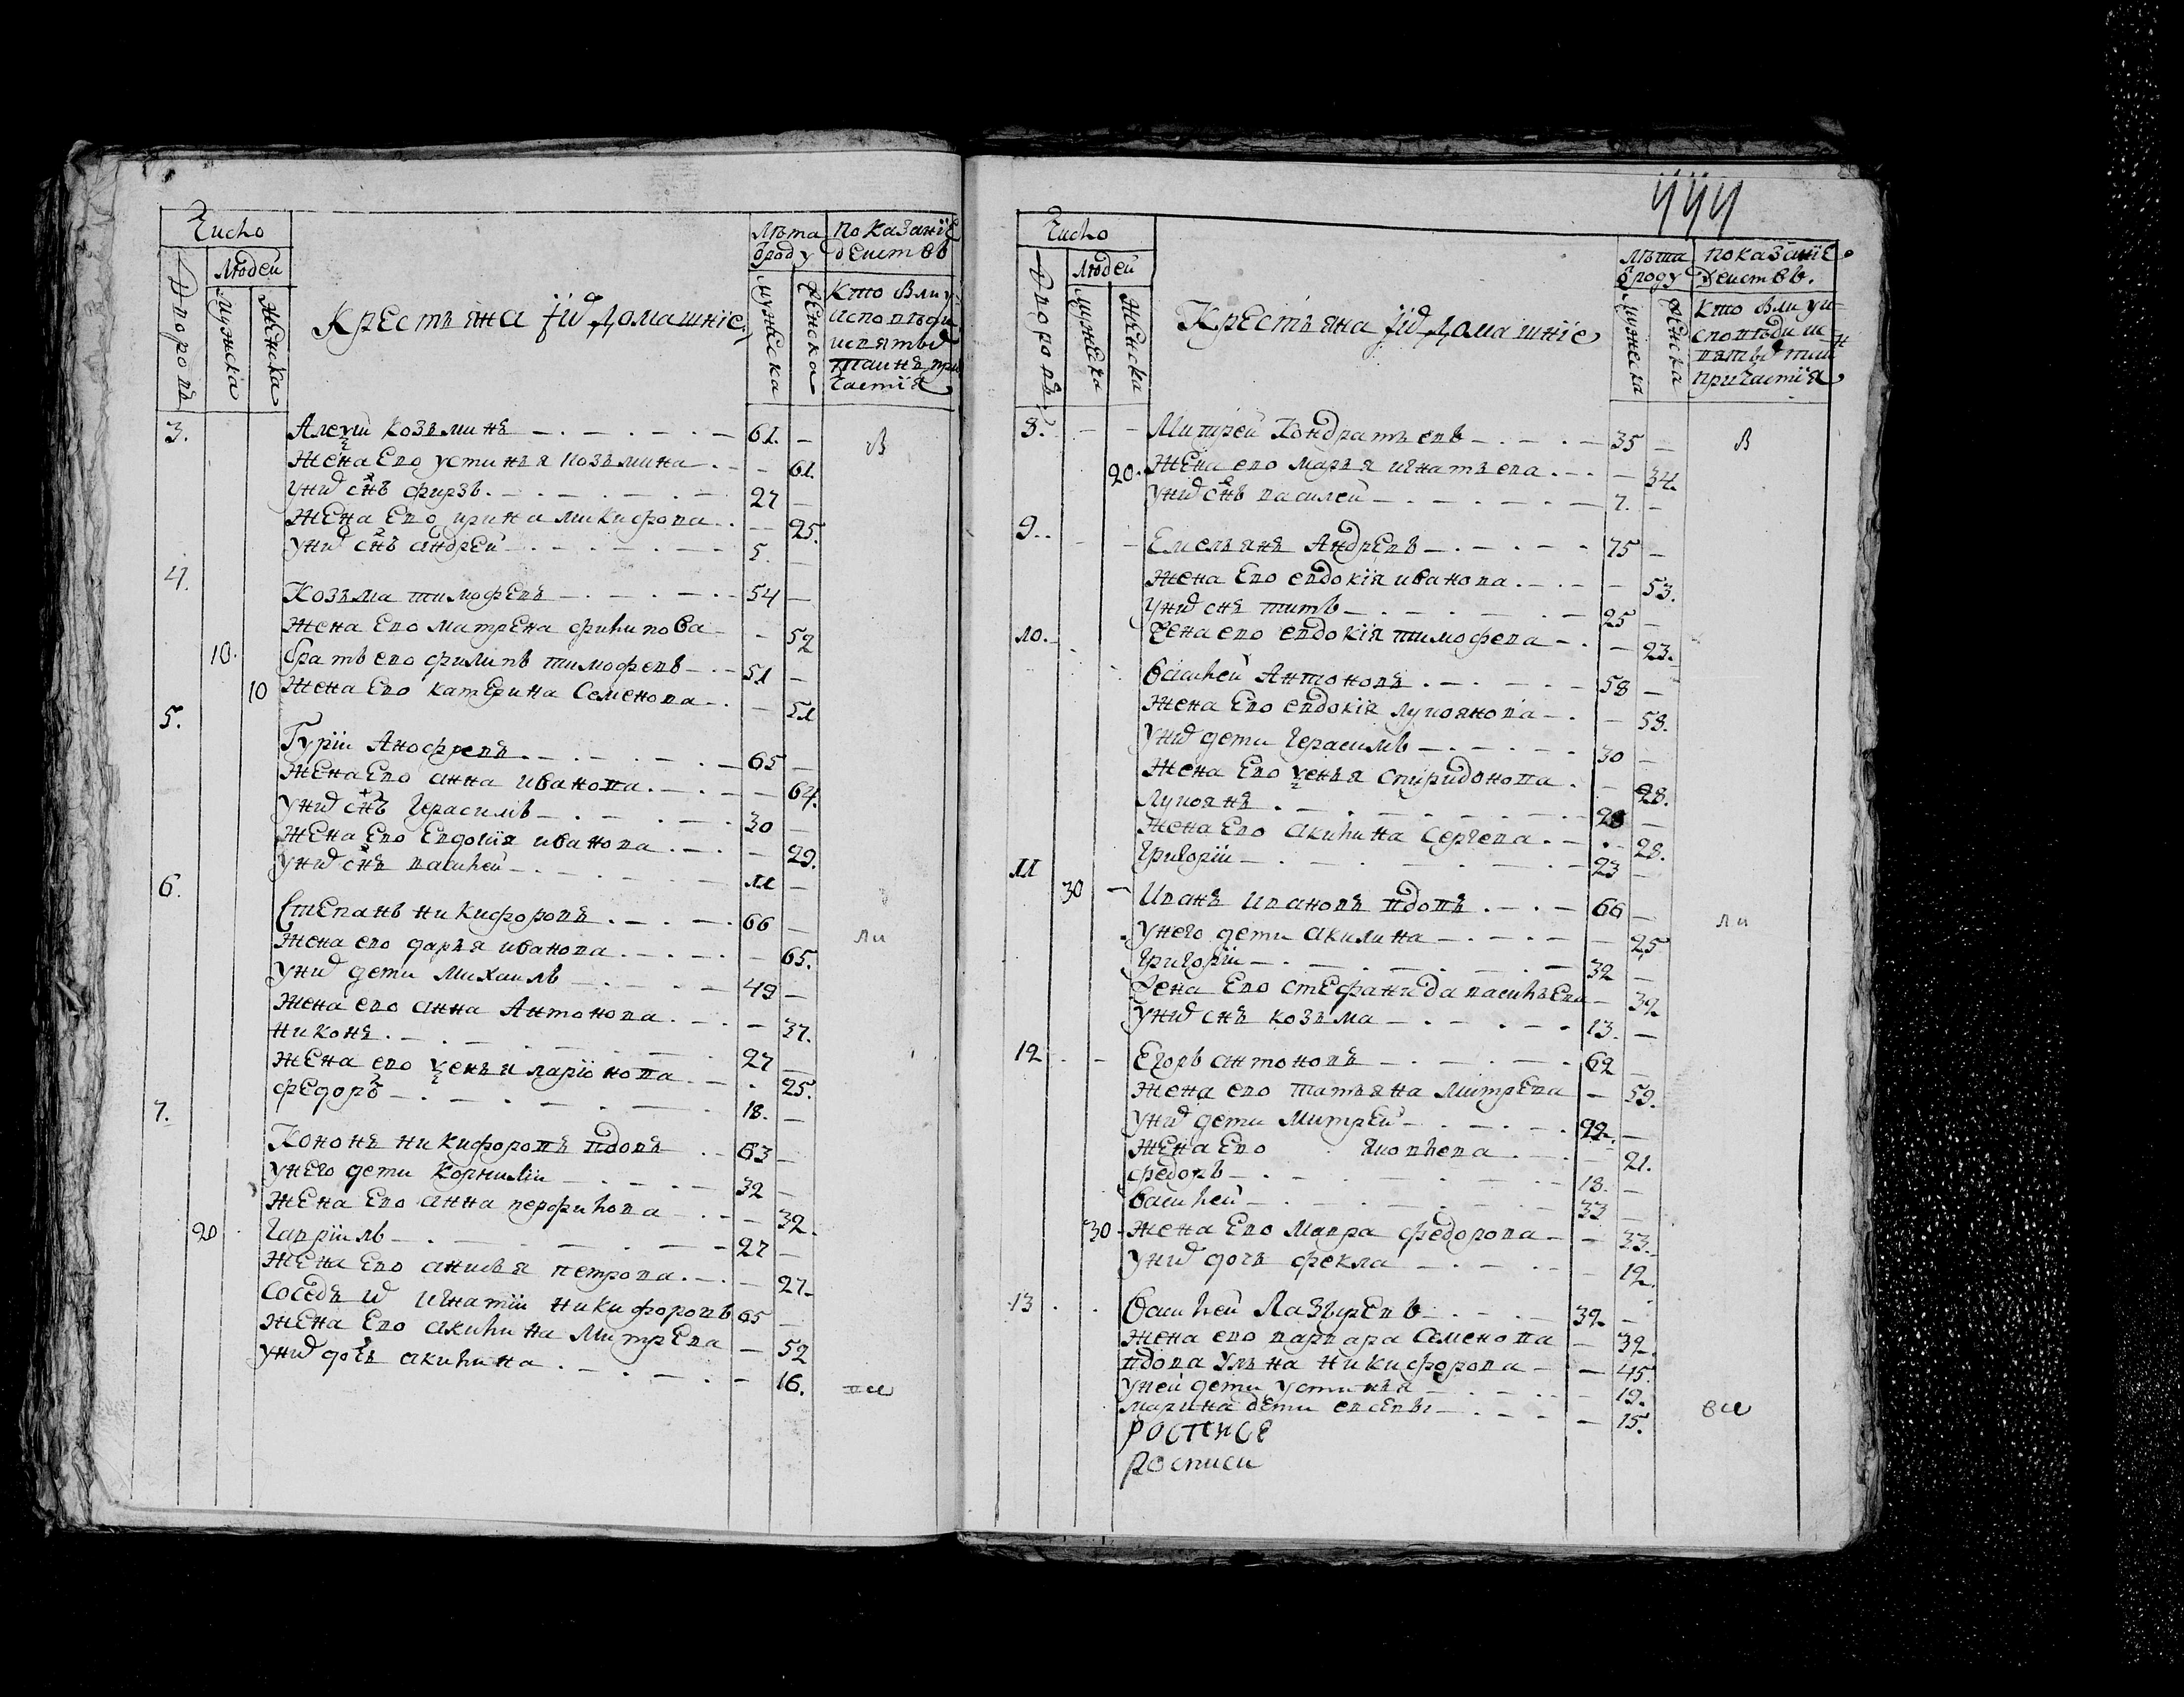 Число
Людей
Дворовъ
Мужска
Женска
Крестьяна и ихъ домашніе
Лѣта
ѿроду
мужеска
женска
показаніе
действъ
Кто былъ у
исповѣди
и святыхъ
таинъ при
частія
3. Алеѯѣй козьминъ 61. В
Жена ево устинья козьмина 61.
у них снъ фирзъ 27
Жена ево ирина микифрова 25.
у них снъ андрей 5.
4. Козьма тимофевъ 54
Жена ево матрена филипова 52
10. братъ ево филипъ тимофевъ 51
10 Жена ево катерина Семенова 51
5. Гурїи Анофревъ 65
Жена ево анна иванова 64.
у них снъ герасимъ 30
Жена ево евдокїя иванова 29.
у них снъ василей 11
6. Степанъ никифоровъ 66 ли
Жена ево дарья иванова 65.
у них дети михаилъ 49
Жена ево анна Антонова 37.
никонъ 27
Жена ево ѯенья ларїонова 25.
федоръ 18.
7. Кононъ никифоровъ вдовъ 63
у него дети корнилїи 32
Жена ево анна перфилова 32.
20 гаврїилъ 27
Жена ево анисья петрова 27.
соседъ их игнатїи никифоровъ 65
Жена ево акилина митрева 52
у них дочь акилина 16. вси
444
Число
Людей
Дворовъ
Мужска
Женска
Крестьяна и ихъ домашніе
Лѣта
ѿроду
мужеска
женска
показаніе
действъ.
Кто былъ у и
споведи и с
вятыхъ таин
причастїя
8. Митрей Кондратьевъ 35 В
20. Жена ево марья игнатьева 34.
у них снъ василей 7.
9. Емельянъ Андревъ 75
Жена ево евдокїя иванова 53.
у них снъ титъ 25
10. Жена ево евдокїя тимофева 23.
Василей Антоновъ 58
Жена ево евдокїя лукоянова 58.
у них дети герасимъ 30
Жена ево ѯенья спиридонова 28.
Лукоянъ 28
Жена ево акилина сергева 28.
григорїи 23
11 30 Иванъ ивановъ вдовъ 66 ли
у него дети акилина 25
григорїи 32
Жена ево стефанида васильева 32
у них снъ козьма 13.
12 Егоръ антоновъ 62
Жена ево татьяна митрева 59.
у них дети митрей 22.
Жена ево яковлева 21.
федоръ 18.
василей 33
30 Жена ево мавра федорова 33.
у них дочь фекла 12.
13 Василей Лазыревъ 32
Жена ево варвара семенова 32.
вдова ульна никифорова 45.
у ней дети устинья 19.
марина дети евсевы 15. вси
Росписи